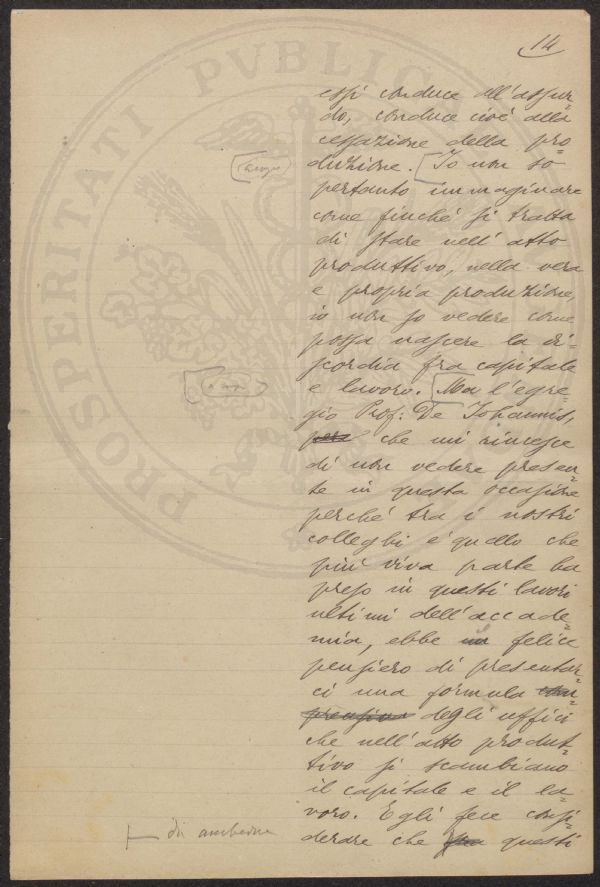 14
essi conduce all'assur=
do, conduce cioè alla
cessazione della pro=
duzione. Io non so
pertanto immaginare
come finché si tratta
di stare nell'atto
produttivo, nella vera
e propria produzione,
io non so vedere come
possa nascere la di=
scordia fra capitale
e lavoro. Ma l'egre=
gio Prof: De Johannis,
però che mi rincresce
di non vedere presen=
te in questa occasione
perché tra i nostri
colleghi è quello che
più viva parte ha
preso in questi lavori
ultimi dell'accade=
mia, ebbe un felice
pensiero di presentar=
ci una formula
degli uffici
che nell'atto produt=
tivo si scambiano
il capitale e il la=
voro. Egli fece consi=
derare che questi
di ambedue
PROSPERITATI PVBLICAE